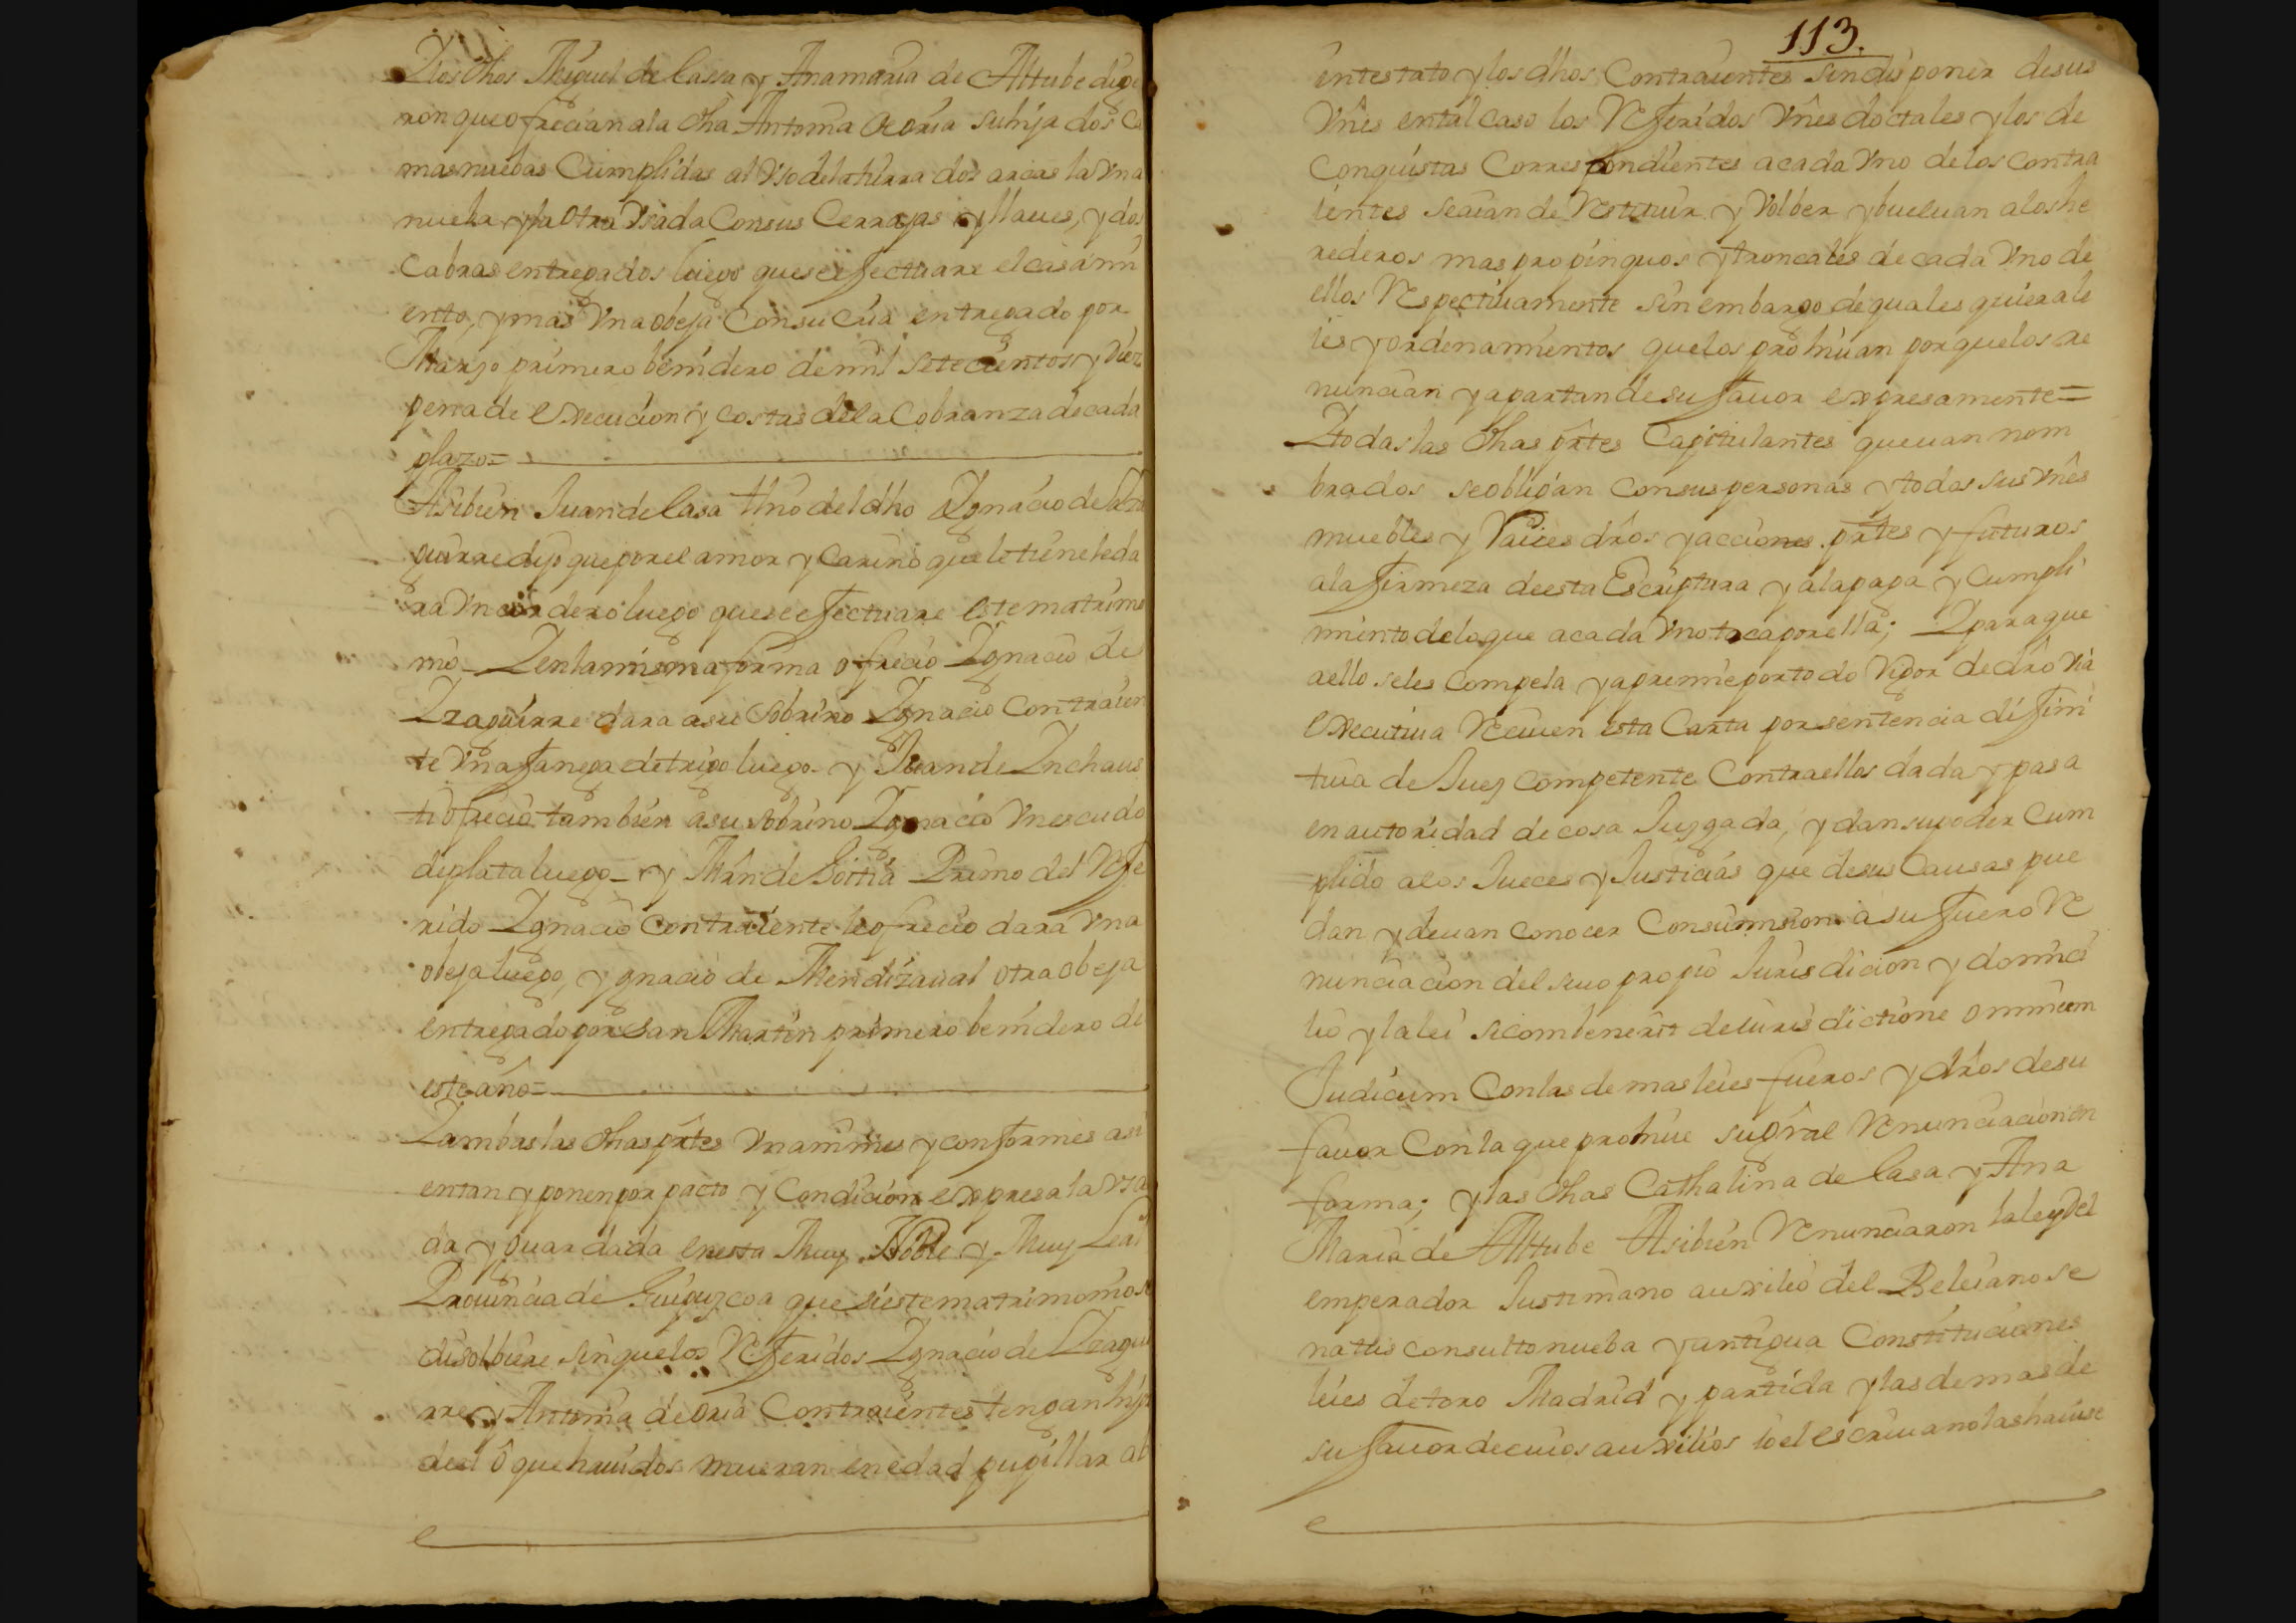 Y los dhos Miguel de Cassa y Anamaria de Altube dige
ron que ofrecian a la dha Antonia de Oria su hija dos ca
mas nuebas Cumplidas al Vso de la tierra dos arcas la Vna
nueba y la Otra Vsada Con sus Cerrajas y llaues, y dos
Cabras entregados luego que se efectuare el casami
ento, y mas Vna obeja Con su cria entregado por
Marzo primero benidero de mil setecientos y diez
pena de execucion y costas de la Cobranza de cada
plazo=
Asibien Juan de Casa thno del dho Ygnacio de
guirre dijo que por el amor y Carino que le tiene le da
ra Vn cordero luego que se efectuare este matrimo
nio Y en la misma forma ofrecio Ygnacio de
Yzaguirre dara a su Sobrino Ygnacio Contraien
te Vna fanega de trigo luego y Juan de Ynchaus
ti Ofrecio tambien a su sobrino Ygnacio Vn escudo
de plata luego y Mrn de Goitia Primo del Refe
rido Ygnacio Contraiente le ofrecio dara Vna
obeja luego, y gnacio de Mendizaual otra obeja
entregado por San Martin primero benidero de
este año=
Y ambas las dhas ptes Vnanimes y conformes asi
entan y ponen por pacto y Condicion expresa la Vsa
da y guardada en esta Muy Noble y Muy Leal
Prouincia de Guipuzcoa que si este matrimonio se
disolbiere sin que los Referidos Ygnacio de Yzagui
rre y Antonia de Oria Contraientes tengan hijos
del O que hauidos mueran en edad pupillar ab
113.
intestato y los dhos Contraientes sin disponer de sus
Vnes en tal caso los Referidos Vnes doctales y los de
Conquistas Correspondientes a cada Vno de los contra
ientes se aian de Restituir y Volber y bueluan a los he
rederos mas propinquos y troncales de cada Vno de
ellos Respectiuamente sin embargo de quales quiera le
ies y ordenamientos que los prohiuan por que los re
nuncian y apartan de su fauor expresamente=
Y todas las dhas ptes Capitulantes que uan nom
brados se obligan con sus personas y todos sus Vnes
muebles y Raices dros y acciones ptes y futuros
a la firmeza de esta Escriptura y a la paga y Cumpli
miento de lo que a cada Vno toca por ella; Y para que
a ello se les Compela y apremie por todo Rigor de dro Via
executiua Reciuen esta Carta por sentencia difini
tiua de Juez Competente Contra ellos dada y pasa
en autoridad de cosa Juzgada, y dan su poder Cum
plido a los Jueces y Justicias que de sus Causas pue
dan y deuan conocer Con sumision a su fuero Re
nunciacion del suo propio Jurisdicion y domici
lio y la lei sicombenerit de iurisdictione omnium
Judicum Con las demas leies fueros y dros de su
fauor Con la que prohiue su gral Renunciacion en
forma; y las dhas Cathalina de Casa y Ana
Maria de Altube Asibien Renunciaron la ley del
emperador Justiniano auxilio del Beleiano se
natus consulto nueba y antigua Constituciones
leies de toro Madrid y partida y las demas de
su fauor de cuios auxilios io el escriuano las hauise